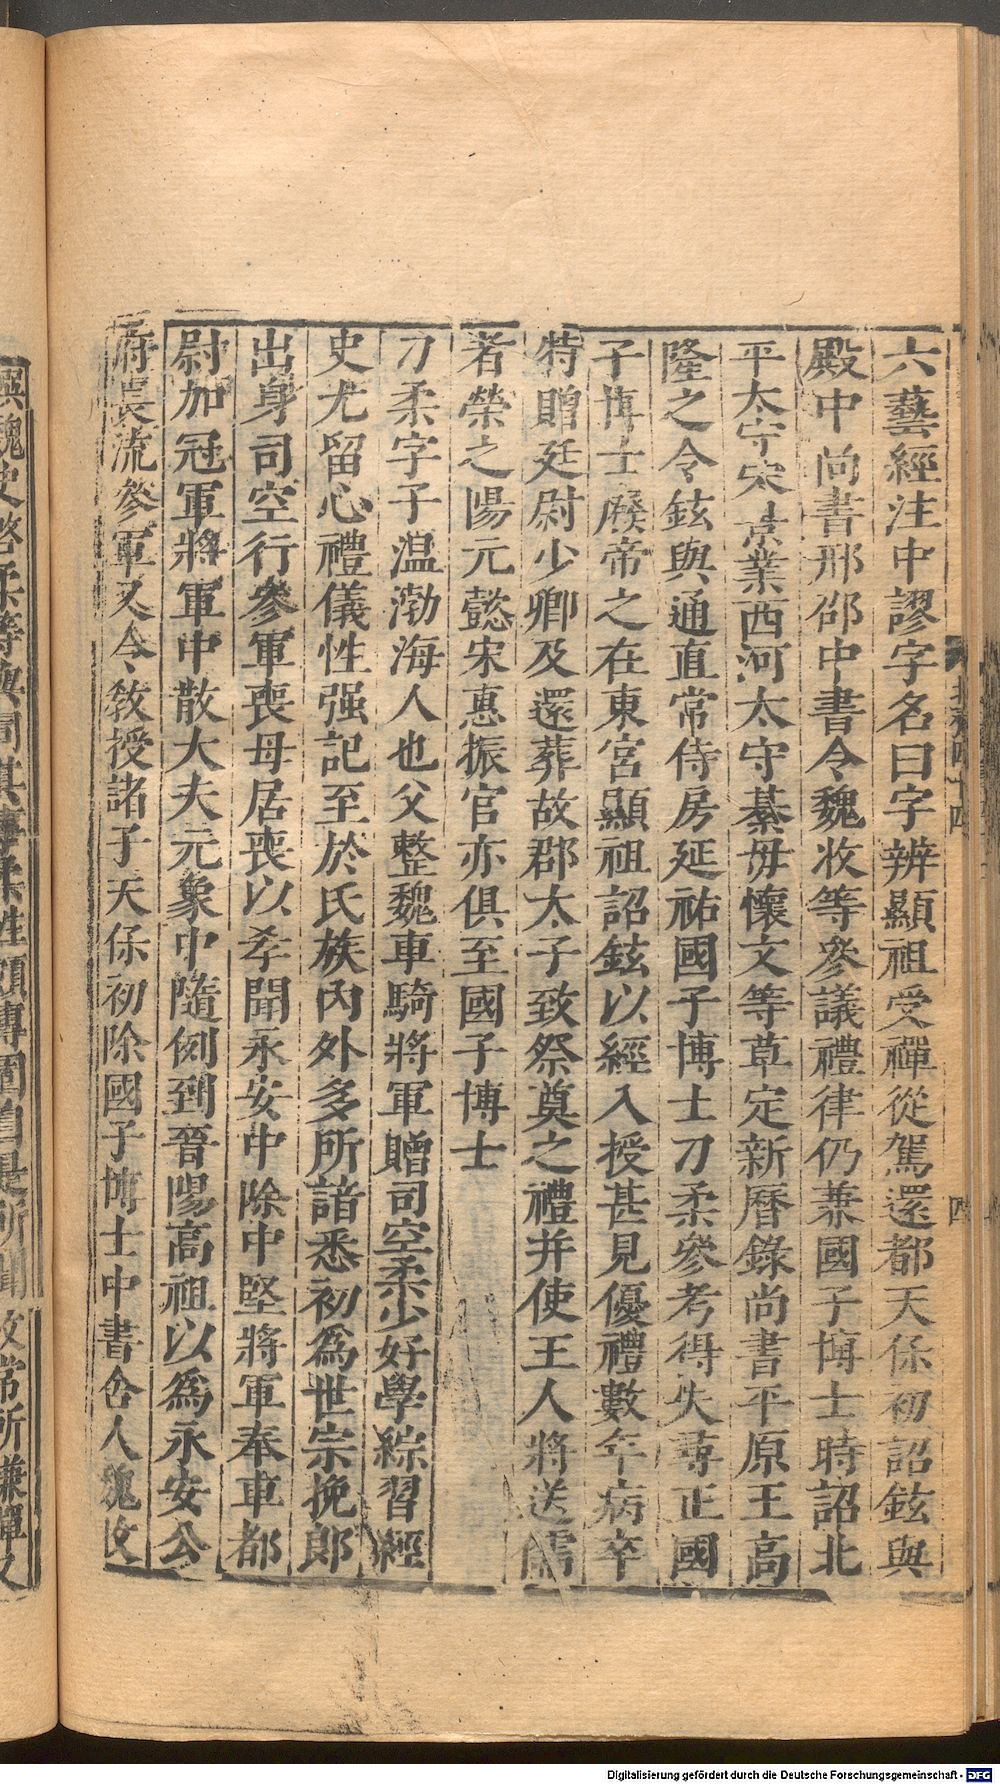 六藝經注中謬字名曰字辨顯祖受禪從駕還都天保初詔鉉與
殿中尚書邢邵中書令魏收等參議禮律仍兼國子博士時詔北
平太守宋景業西河太守綦毋懷文等草定新曆錄尚書平原王高
隆之令鉉與通直常侍房延祐國子博士刀柔參考得失尋正國
子博士廢帝之在東宮顯祖詔鉉以經入授甚見優禮數年病卒
特贈廷尉少卿及還葬故郡太子致祭奠之禮并使王人將送儒
者榮之陽元懿宋惠振官亦俱至國子博士
刀柔字子温渤海人也父整魏車騎將軍贈司空柔少好學綜習經
史尤留心禮儀性强記至於氏族內外多所諳悉初爲世宗挽郎
出身司空行參軍喪母居喪以孝聞永安中除中堅將軍奉車都
尉加冠軍將軍中散大夫元象中隨例到晉陽高祖以爲永安公
府長流參軍又令教授諸子天保初除國子博士中書舍人魏收
北齊四十四
四
Digitalisierung gefördert durch die Deutsche Forschungsgemeinschaft - DFG